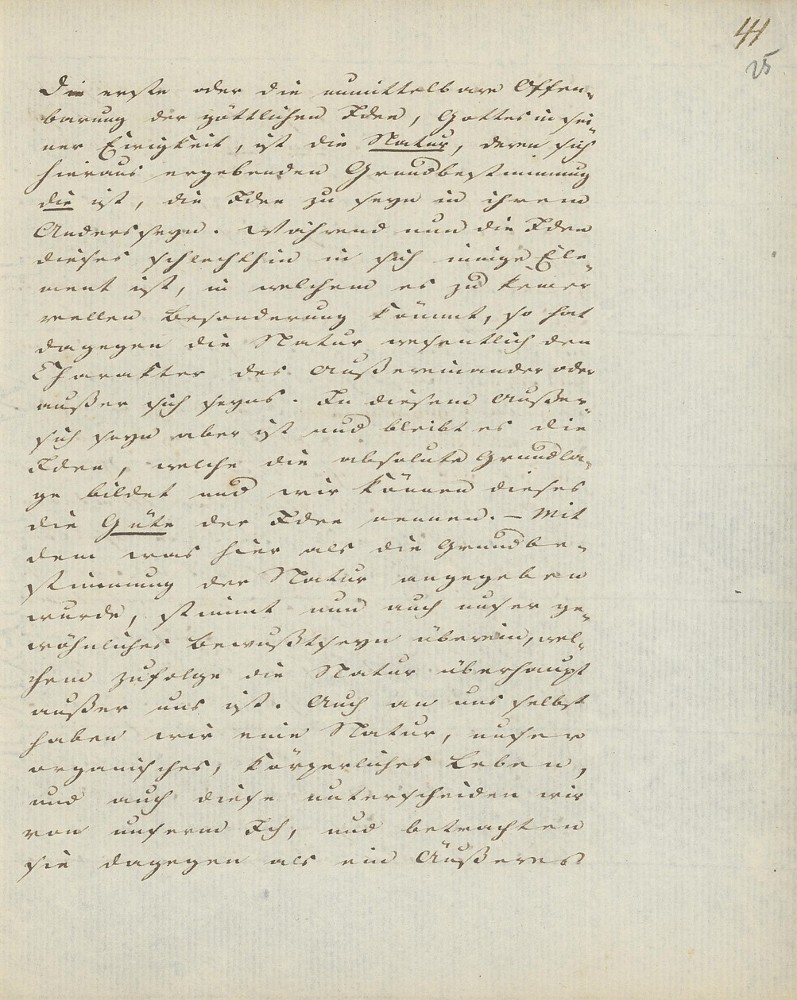 41
25
Die erste oder die unmittelbare Offen-
barung der göttlichen Idee, Gottes in sei-
ner Ewigkeit, ist die Natur, deren sich
hieraus ergebenden Grundbestimmung
die ist, die Idee zu seyn in ihrem
Andersseyn. Während nun die Idee
dieses schlechthin in sich innige Ele-
ment ist, in welchem es zu keiner
reellen Besonderung kömmt, so hat
dagegen die Natur wesentlich den
Charakter des Außereinander oder
außer sich seyns. In diesem Außer-
sich seyn aber ist und bleibt es die
Idee, welche die absolute Grundla-
ge bildet und wir können dieses
die Güte der Idee nennen. – Mit
dem was hier als die Grundbe-
stimmung der Natur angegeben
wurde, stimmt nun auch unser ge-
wöhnliches Bewußtseyn überein, wel-
chem zufolge die Natur überhaupt
außer uns ist. Auch an uns selbst
haben wir eine Natur, unser
organisches, körperliches Leben,
und auch diese unterscheiden wir
von unserm Ich, und betrachten
sie dagegen als ein Äußeres